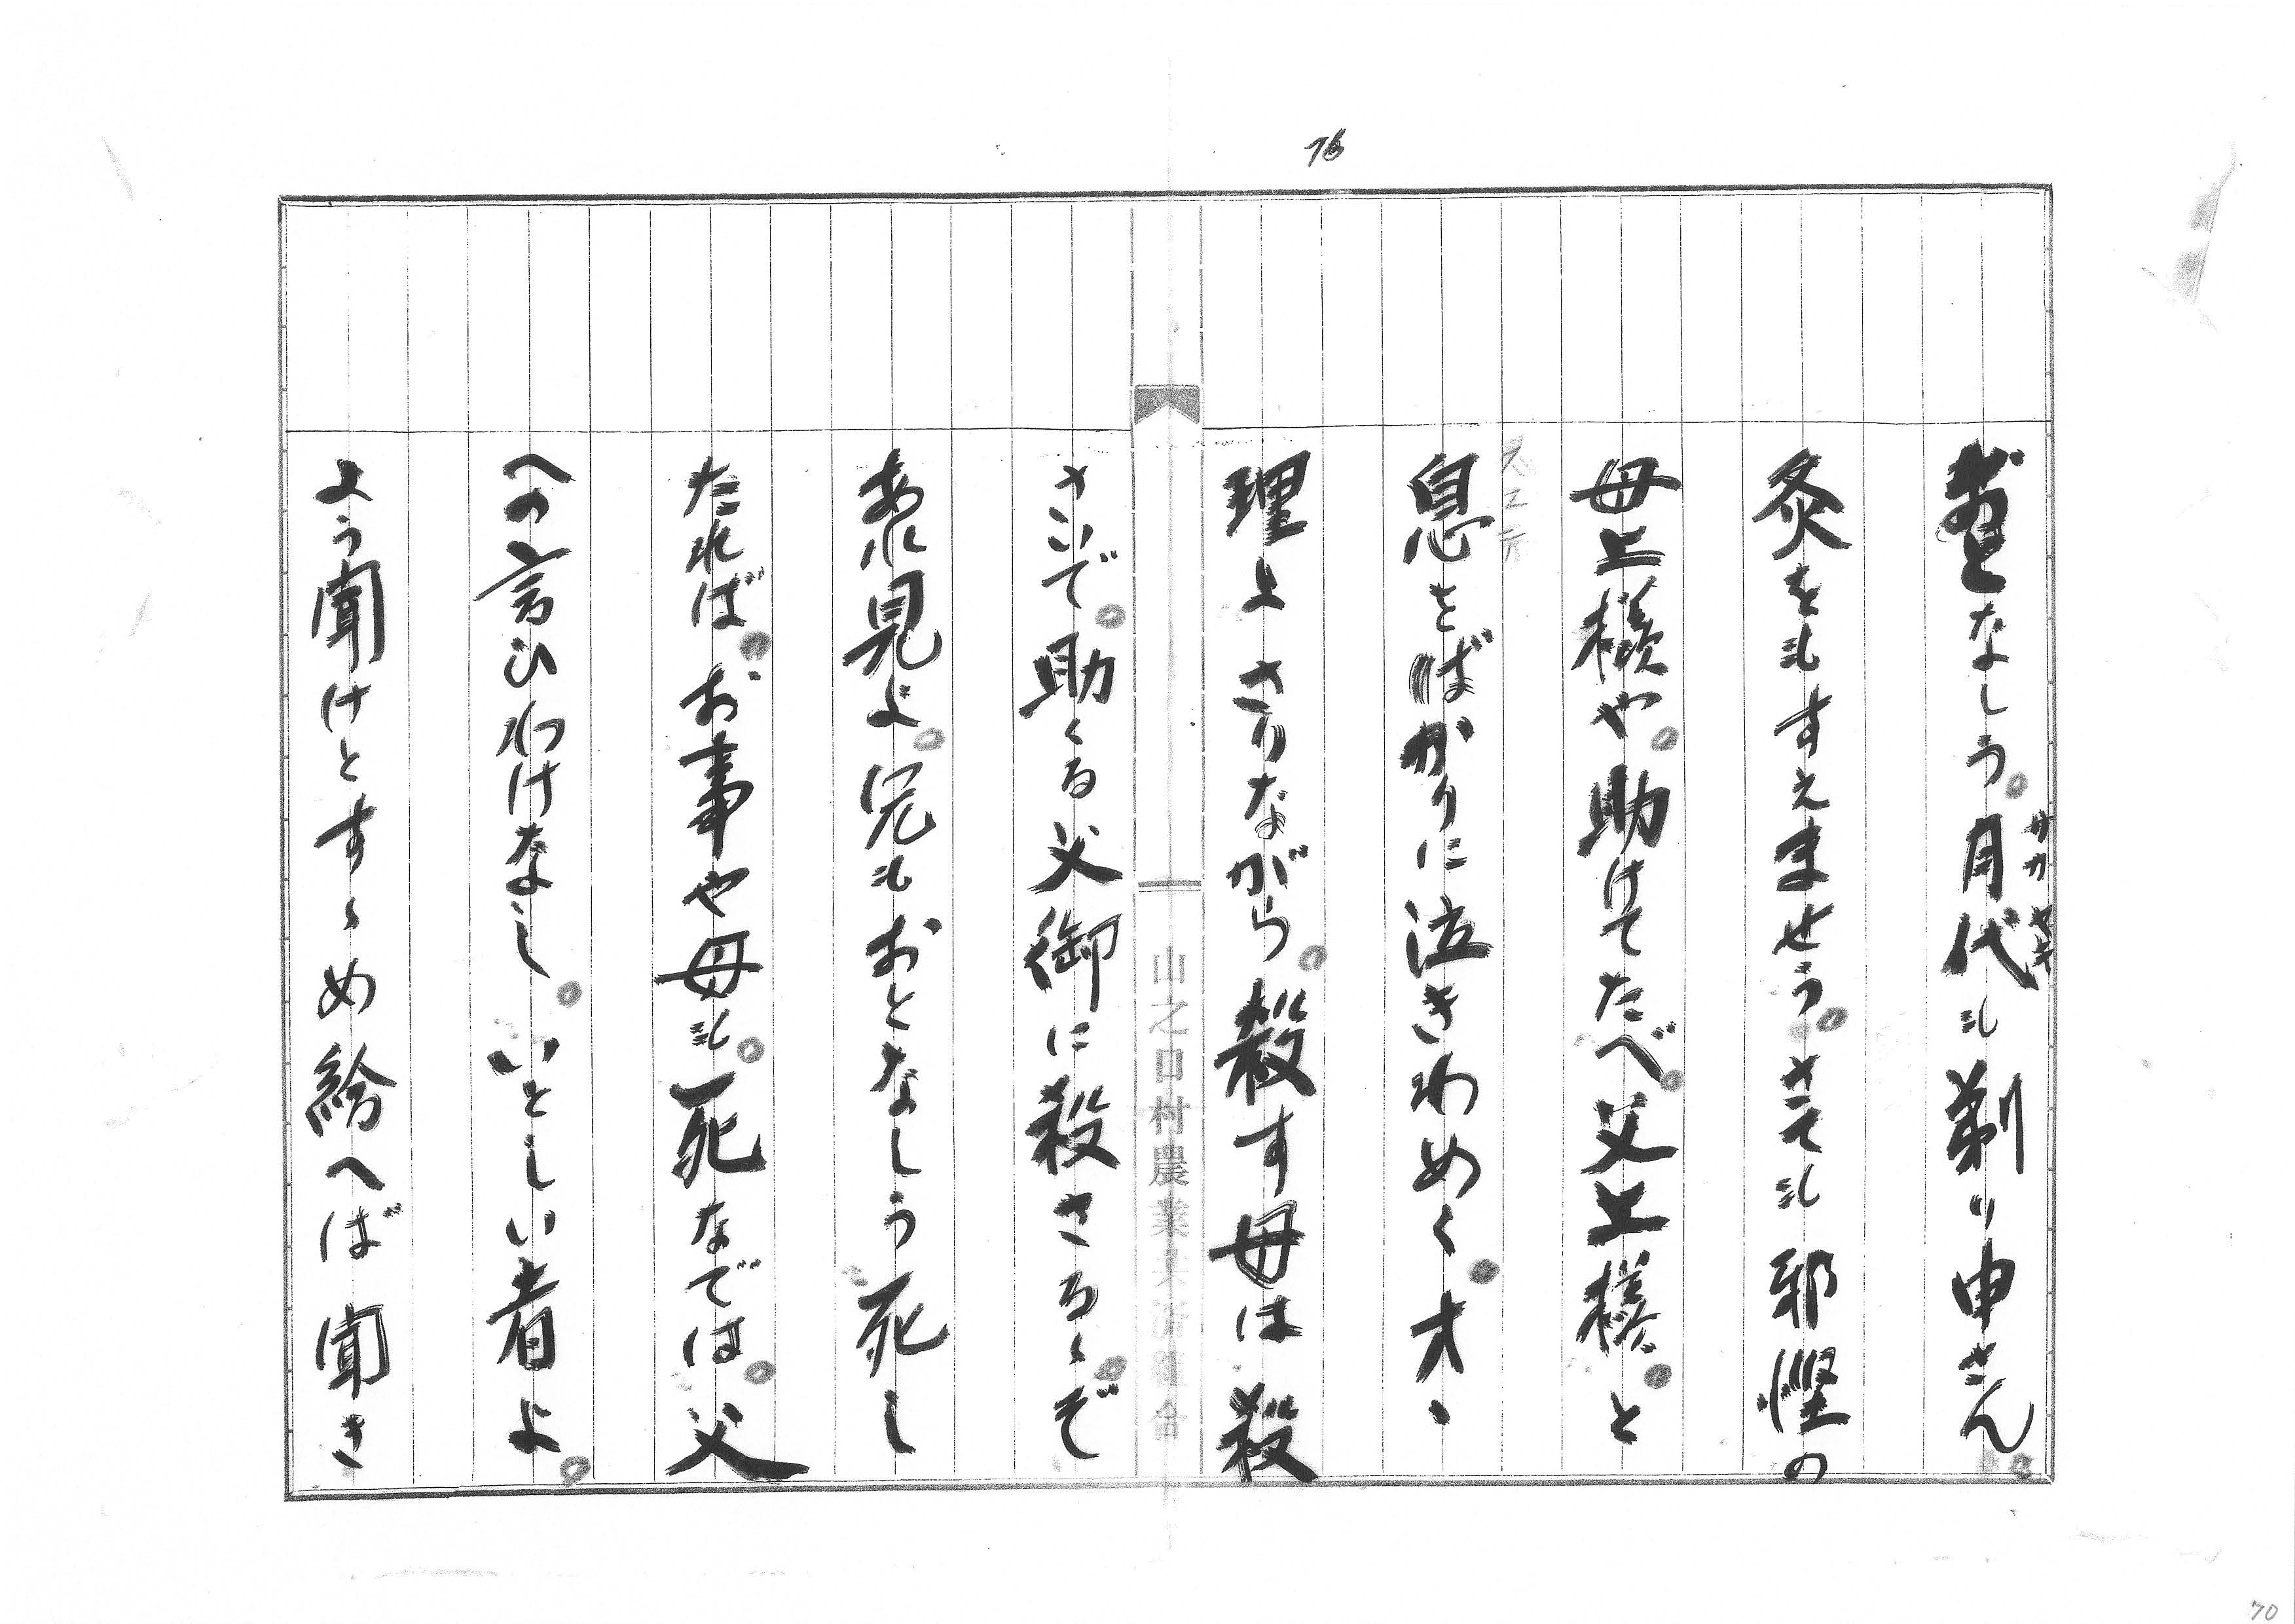 16
となしう。月代も剃り申さん。
サカヤキ
灸をもすえませう。さても邪慳の
母上様や。助けてたべ。父上様。と
息をばかりに泣きわめく。オヽ
理よさりながら。殺す母は殺
さいで。助くる父御に殺さるゝぞ
あれ見よ。兄もおとなしう死し
たれば。お事や母も。死なでは。父
への言ひわけなし。いとしい者よ。
よう聞けとすゝめ給へば聞き
山之口村農業
70